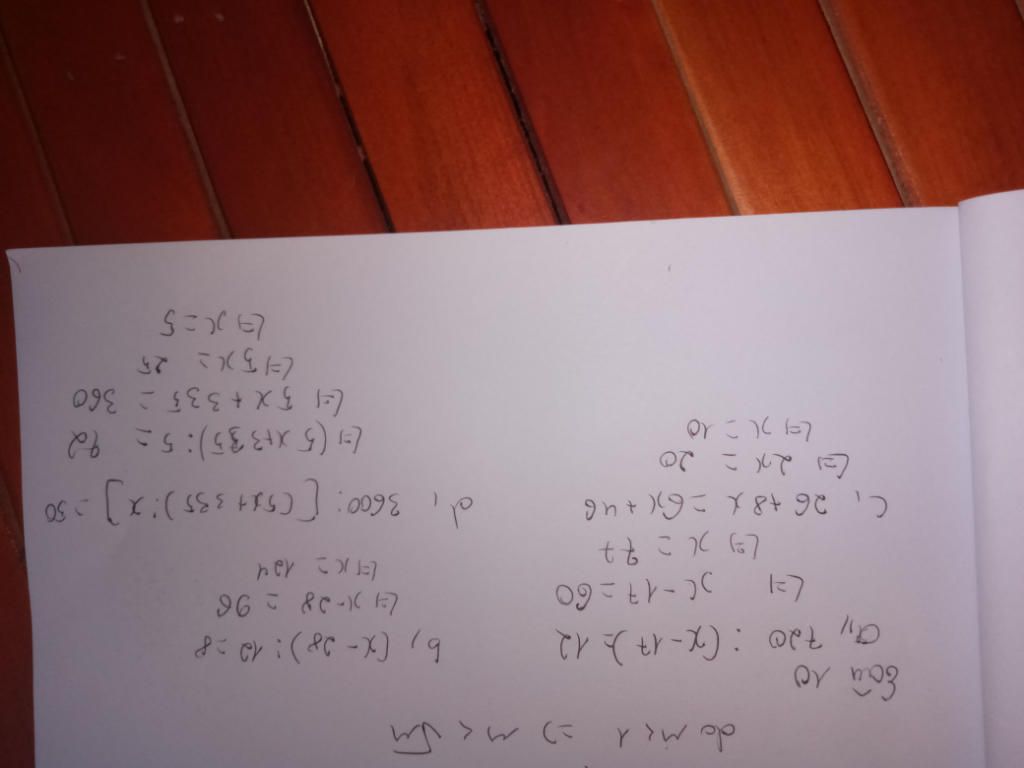 do m < 1 => m < √m
Câu 10
a,, 720 : (x-17) = 12
<=> x-17 = 60
<=> x = 77
b, (x-28) : 12 = 8
<=> x-28 = 96
<=> x = 124
c, 26+8x = 6x+46
<=> 2x = 20
<=> x = 10
d, 3600 : [(5x+335) : x] = 50
<=> (5x+335) : 5 = 72
<=> 5x+335 = 360
<=> 5x = 25
<=> x = 5